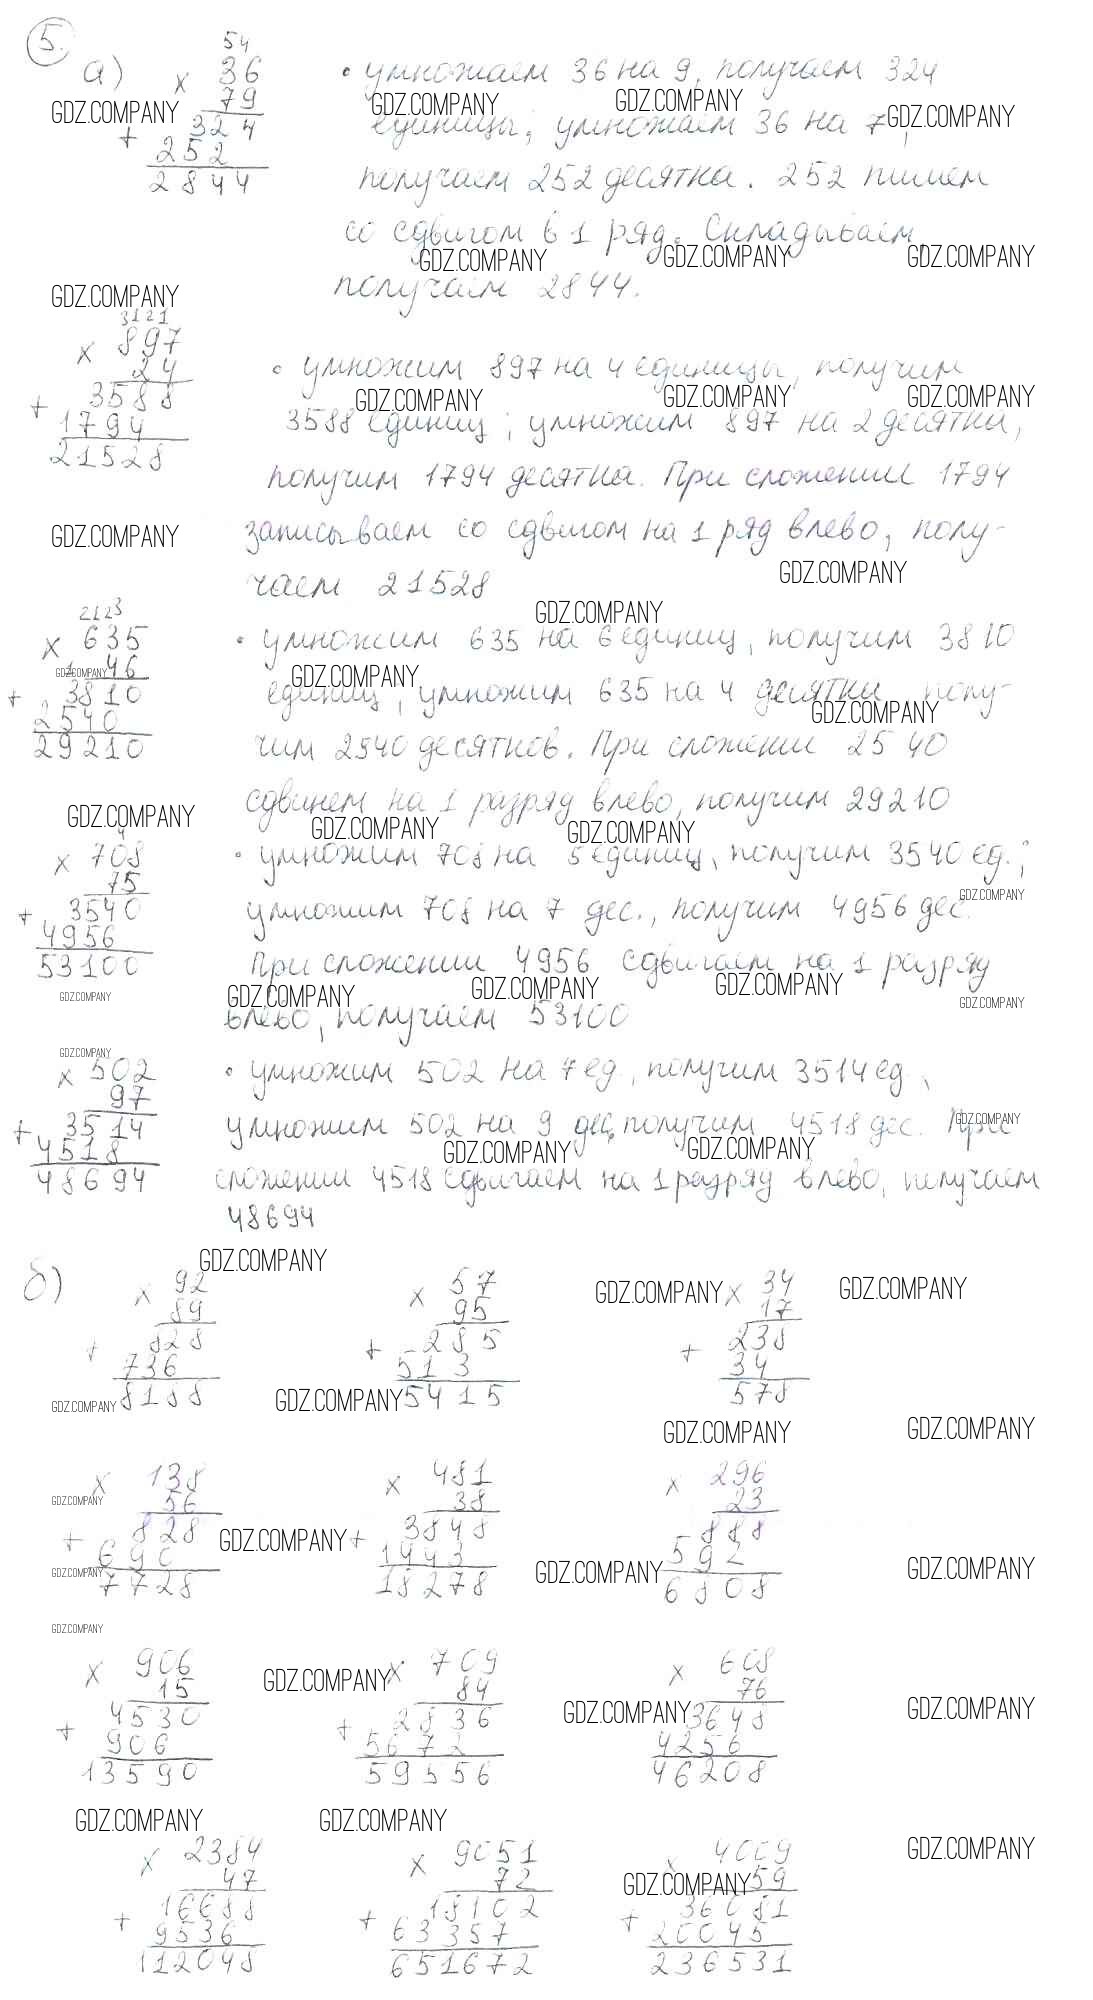 5.
а) 54
× 36
79
+ 324
252
2844
• умножаем 36 на 9, получаем 324
единицы; умножаем 36 на 7,
получаем 252 десятка. 252 пишем
со сдвигом в 1 ряд. Складываем,
получаем 2844.
3121
× 897
24
+ 3588
1794
21528
• умножим 897 на 4 единицы, получим
3588 единиц; умножим 897 на 2 десятка,
получим 1794 десятка. При сложении 1794
записываем со сдвигом на 1 ряд влево, полу-
чаем 21528
2123
× 635
46
+ 3810
2540
29210
• умножим 635 на 6 единиц, получим 3810
единиц, умножим 635 на 4 десятки полу-
чим 2540 десятков. При сложении 2540
сдвинем на 1 разряд влево, получим 29210
× 708
75
+ 3540
4956
53100
• умножим 708 на 5 единиц, получим 3540 ед.;
умножим 708 на 7 дес., получим 4956 дес.
При сложении 4956 сдвигаем на 1 разряд
влево, получаем 53100
× 502
97
+ 3514
4518
48694
• умножим 502 на 7 ед, получим 3514 ед,
умножим 502 на 9 дес, получим 4518 дес. При
сложении 4518 сдвигаем на 1 разряд влево, получаем
48694
б) × 92
89
+ 828
736
8188
× 57
95
+ 285
513
5415
× 34
17
+ 238
34
578
× 138
56
+ 828
690
7728
× 481
38
+ 3848
1443
18278
× 296
23
888
592
6808
× 906
15
+ 4530
906
13590
× 709
84
+ 2836
5672
59556
× 608
76
3648
4256
46208
× 2384
47
+ 16688
9536
112048
× 9051
72
+ 18102
63357
651672
× 4009
59
+ 36081
20045
236531
GDZ.COMPANY